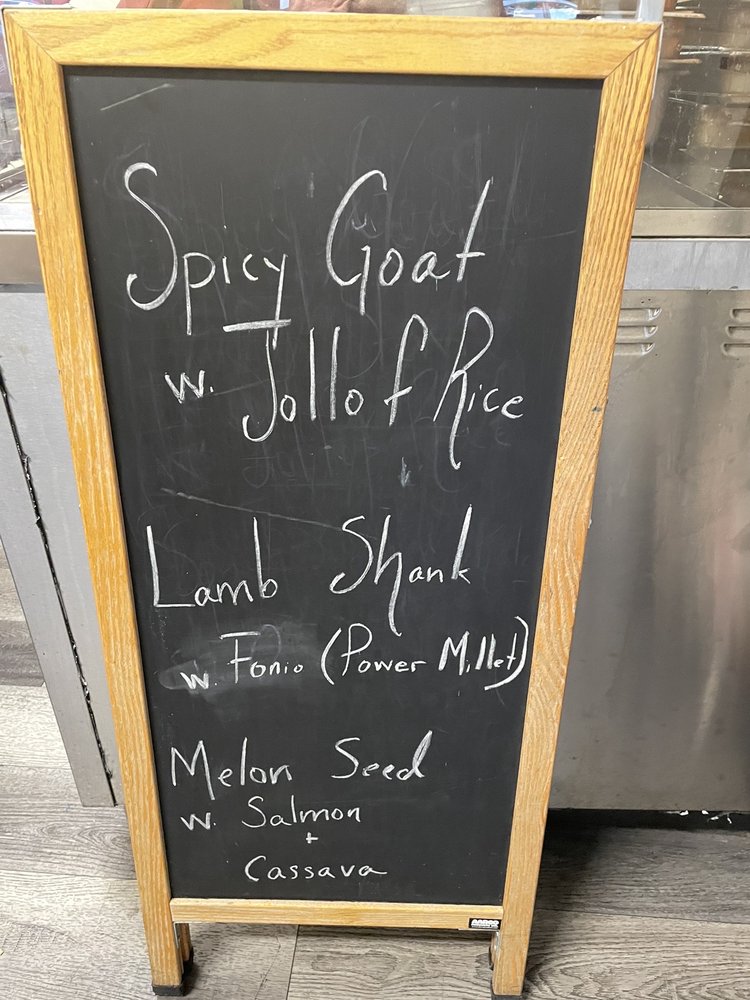 Spicy Goat
w. Jollof Rice
Lamb Shank
w. Fonio (Power Millet)
Melon Seed
w. Salmon
+
Cassava
AARCO